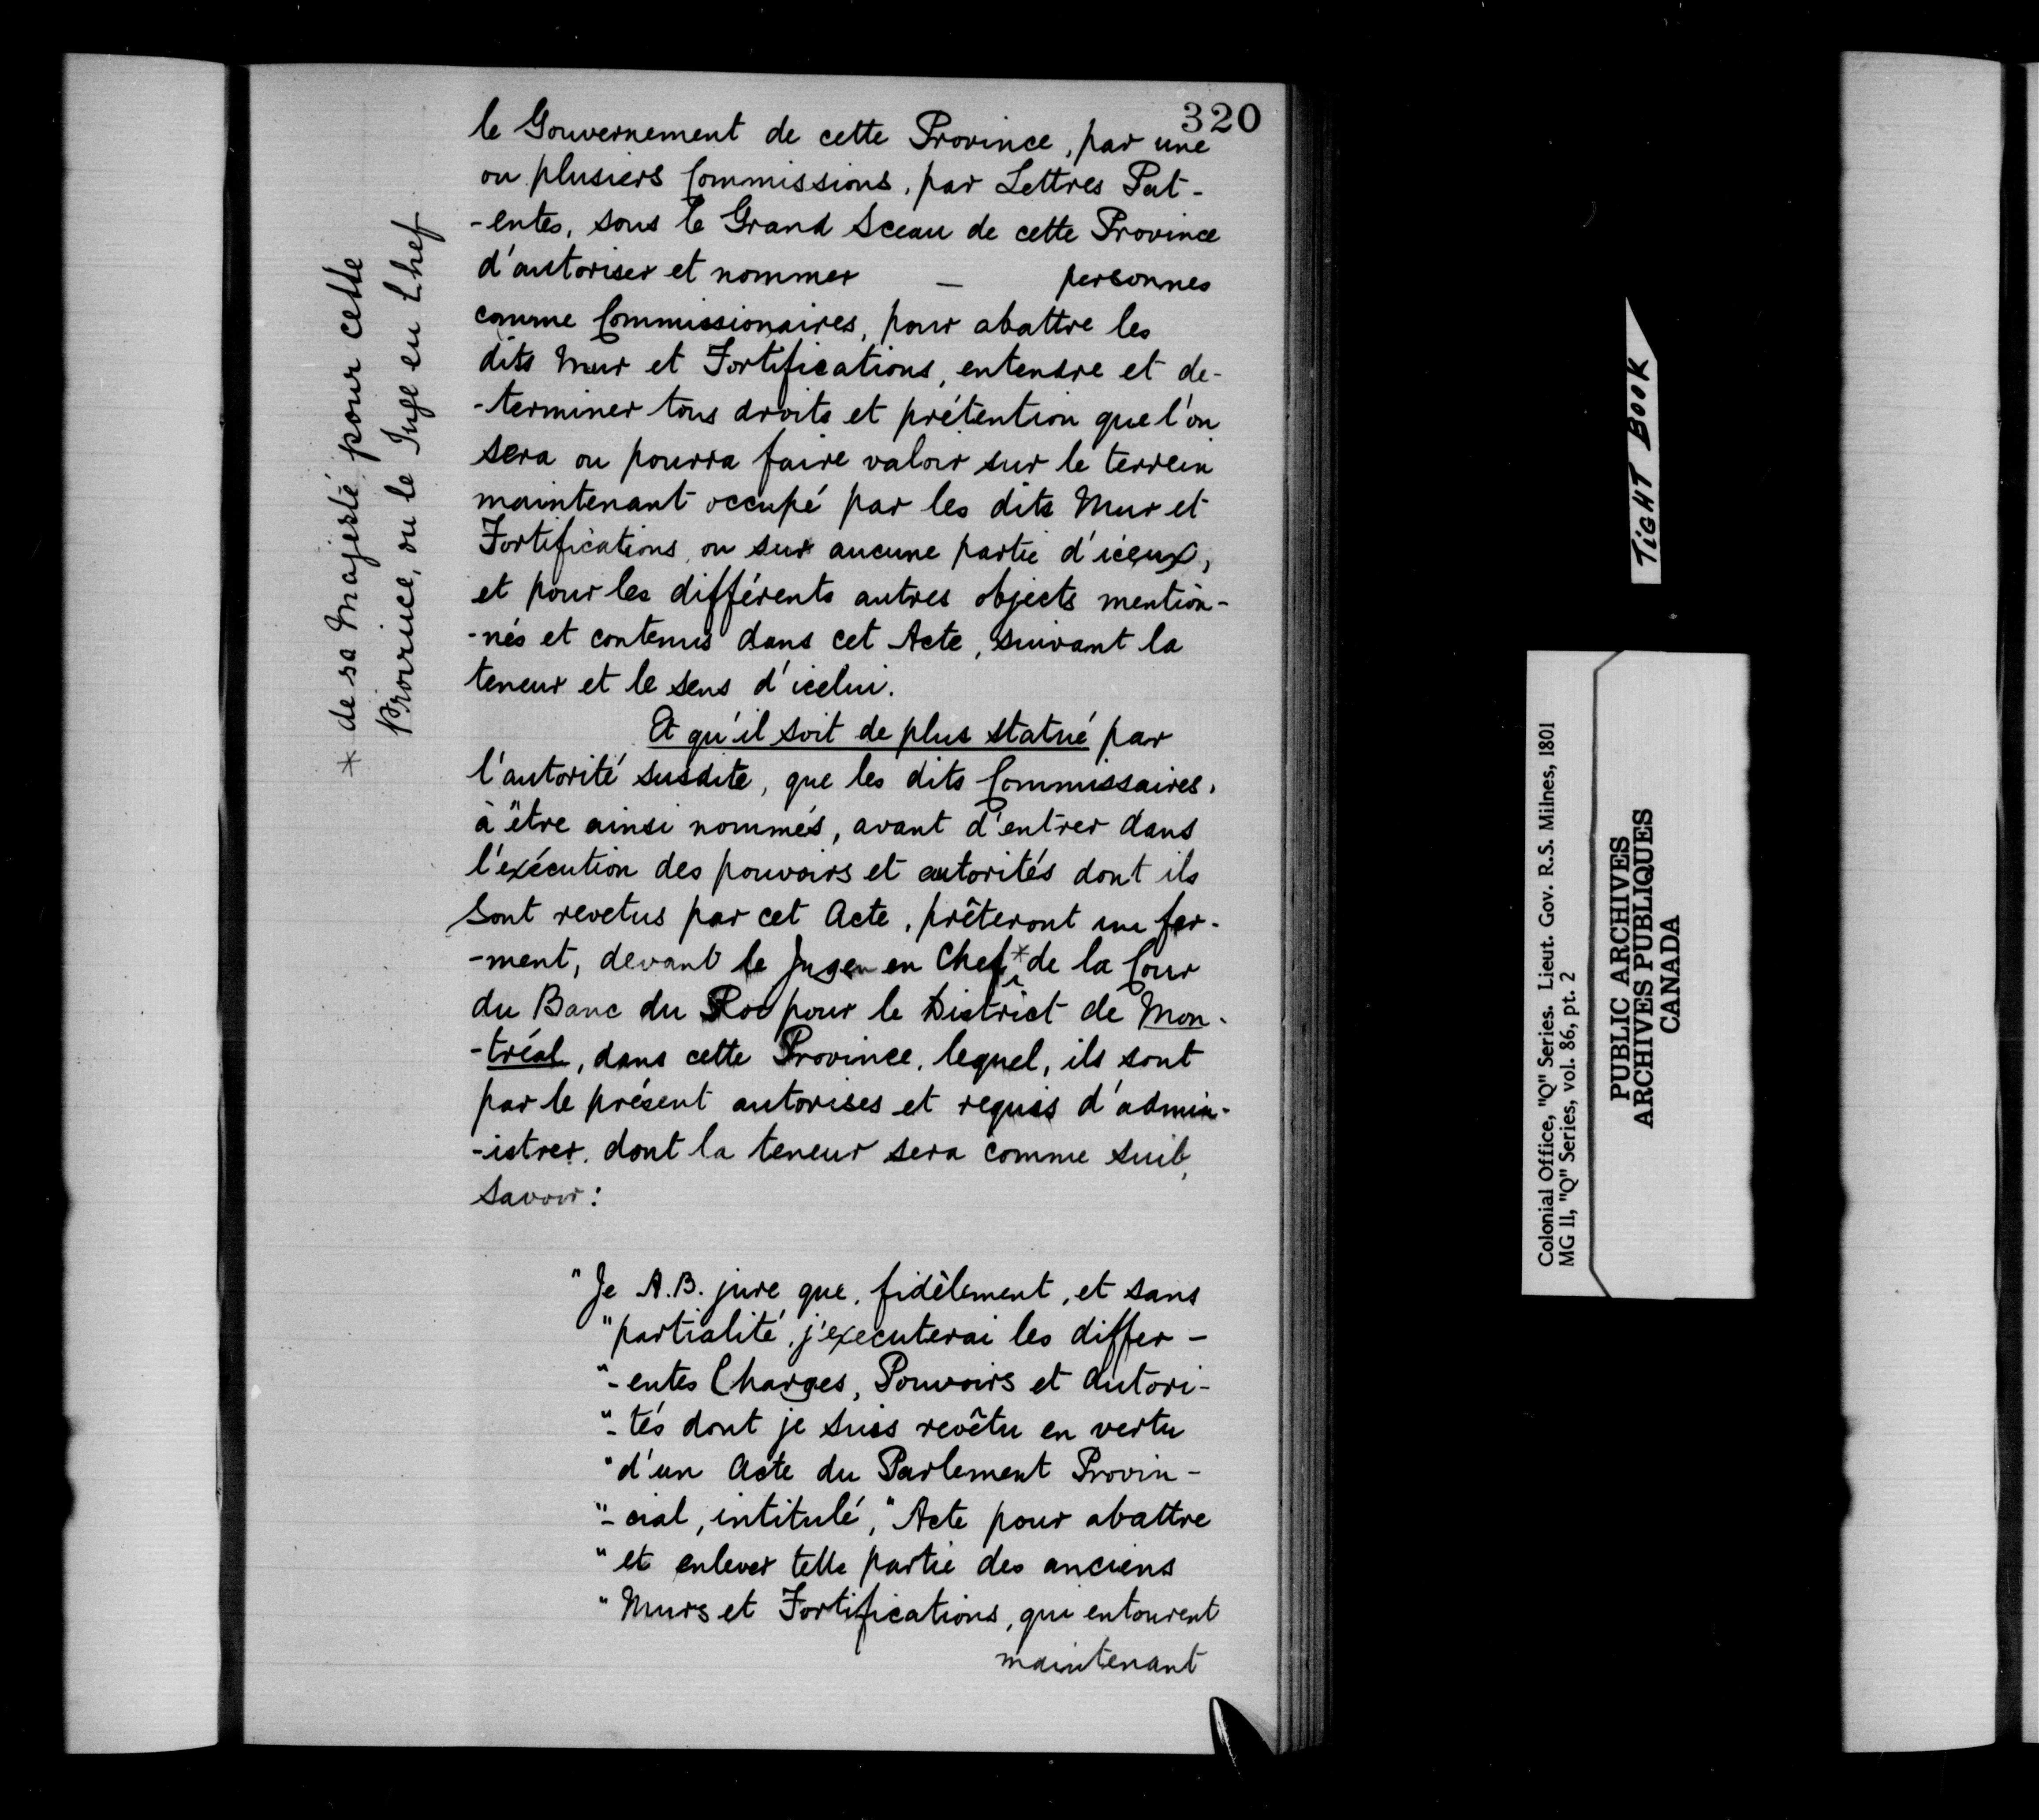 320
le Gouvernement de cette Province, par une
ou plusiers Commissions, par Lettres Pat-
-entes, sous le Grand Sceau de cette Province
d'autoriser et nommer — personnes
comme Commissionaires, pour abattre les
dits Mur et Fortifications, entendre et de-
-terminer tous droits et prétention que l'on
sera ou pourra faire valoir sur le terrein
maintenant occupé par les dits Mur et
Fortifications, ou sur aucune partie d'iceux,
et pour les différents autres objects mention-
-nés et contenus dans cet Acte, suivant la
teneur et le sens d'icelui.
Et qu'il soit de plus statué par
l'autorité susdite, que les dits Commissaires,
à être ainsi nommés, avant d'entrer dans
l'exécution des pouvoirs et autorités dont ils
sont revetus par cet Acte, prêteront un fer-
-ment, devant le Juge en Chef * de la Cour
du Banc du Roi pour le District de Mon-
-tréal, dans cette Province, lequel, ils sont
par le présent autorises et requis d'admin-
-istrer, dont la teneur sera comme suit,
savoir:
"Je A.B. jure que, fidèlement, et sans
"partialité, j'executerai les differ-
"-entes Charges, Pouvoirs et Autori-
"-tés dont je suis revêtu en vertu
"d'un Acte du Parlement Provin-
"-cial, intitulé, "Acte pour abattre
"et enlever telle partie des anciens
"Murs et Fortifications, qui entourent
maintenant
* de sa Majesté pour cette
Province, ou le Juge en Chef
TIGHT BOOK
Colonial Office, "Q" Series. Lieut. Gov. R.S. Milnes, 1801
MG 11, "Q" Series, vol. 86, pt. 2
PUBLIC ARCHIVES
ARCHIVES PUBLIQUES
CANADA